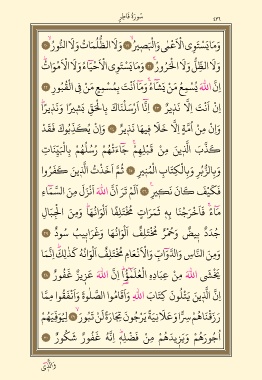 سُورَةُ فَاطِرٍ
٤٣٦
وَمَا يَسْتَوِي الْأَعْمَى وَالْبَصِيرُ ۝ وَلَا الظُّلُمَاتُ وَلَا النُّورُ ۝
وَلَا الظِّلُّ وَلَا الْحَرُورُ ۝ وَمَا يَسْتَوِي الْأَحْيَاءُ وَلَا الْأَمْوَاتُ
إِنَّ اللهَ يُسْمِعُ مَنْ يَشَاءُ وَمَا أَنْتَ بِمُسْمِعٍ مَنْ فِي الْقُبُورِ ۝
إِنْ أَنْتَ إِلَّا نَذِيرٌ ۝ إِنَّا أَرْسَلْنَاكَ بِالْحَقِّ بَشِيرًا وَنَذِيرًا
وَإِنْ مِنْ أُمَّةٍ إِلَّا خَلَا فِيهَا نَذِيرٌ ۝ وَإِنْ يُكَذِّبُوكَ فَقَدْ
كَذَّبَ الَّذِينَ مِنْ قَبْلِهِمْ جَاءَتْهُمْ رُسُلُهُمْ بِالْبَيِّنَاتِ
وَبِالزُّبُرِ وَبِالْكِتَابِ الْمُنِيرِ ۝ ثُمَّ أَخَذْتُ الَّذِينَ كَفَرُوا
فَكَيْفَ كَانَ نَكِيرِ ۝ أَلَمْ تَرَ أَنَّ اللهَ أَنْزَلَ مِنَ السَّمَاءِ
مَاءً فَأَخْرَجْنَا بِهِ ثَمَرَاتٍ مُخْتَلِفًا أَلْوَانُهَا وَمِنَ الْجِبَالِ
جُدَدٌ بِيضٌ وَحُمْرٌ مُخْتَلِفٌ أَلْوَانُهَا وَغَرَابِيبُ سُودٌ ۝
وَمِنَ النَّاسِ وَالدَّوَابِّ وَالْأَنْعَامِ مُخْتَلِفٌ أَلْوَانُهُ كَذَلِكَ إِنَّمَا
يَخْشَى اللهَ مِنْ عِبَادِهِ الْعُلَمَؤُا إِنَّ اللهَ عَزِيزٌ غَفُورٌ ۝
إِنَّ الَّذِينَ يَتْلُونَ كِتَابَ اللهِ وَأَقَامُوا الصَّلَوةَ وَأَنْفَقُوا مِمَّا
رَزَقْنَاهُمْ سِرًّا وَعَلَانِيَةً يَرْجُونَ تِجَارَةً لَنْ تَبُورَ ۝ لِيُوَفِّيَهُمْ
أُجُورَهُمْ وَيَزِيدَهُمْ مِنْ فَضْلِهِ إِنَّهُ غَفُورٌ شَكُورٌ ۝
وَالَّذِي